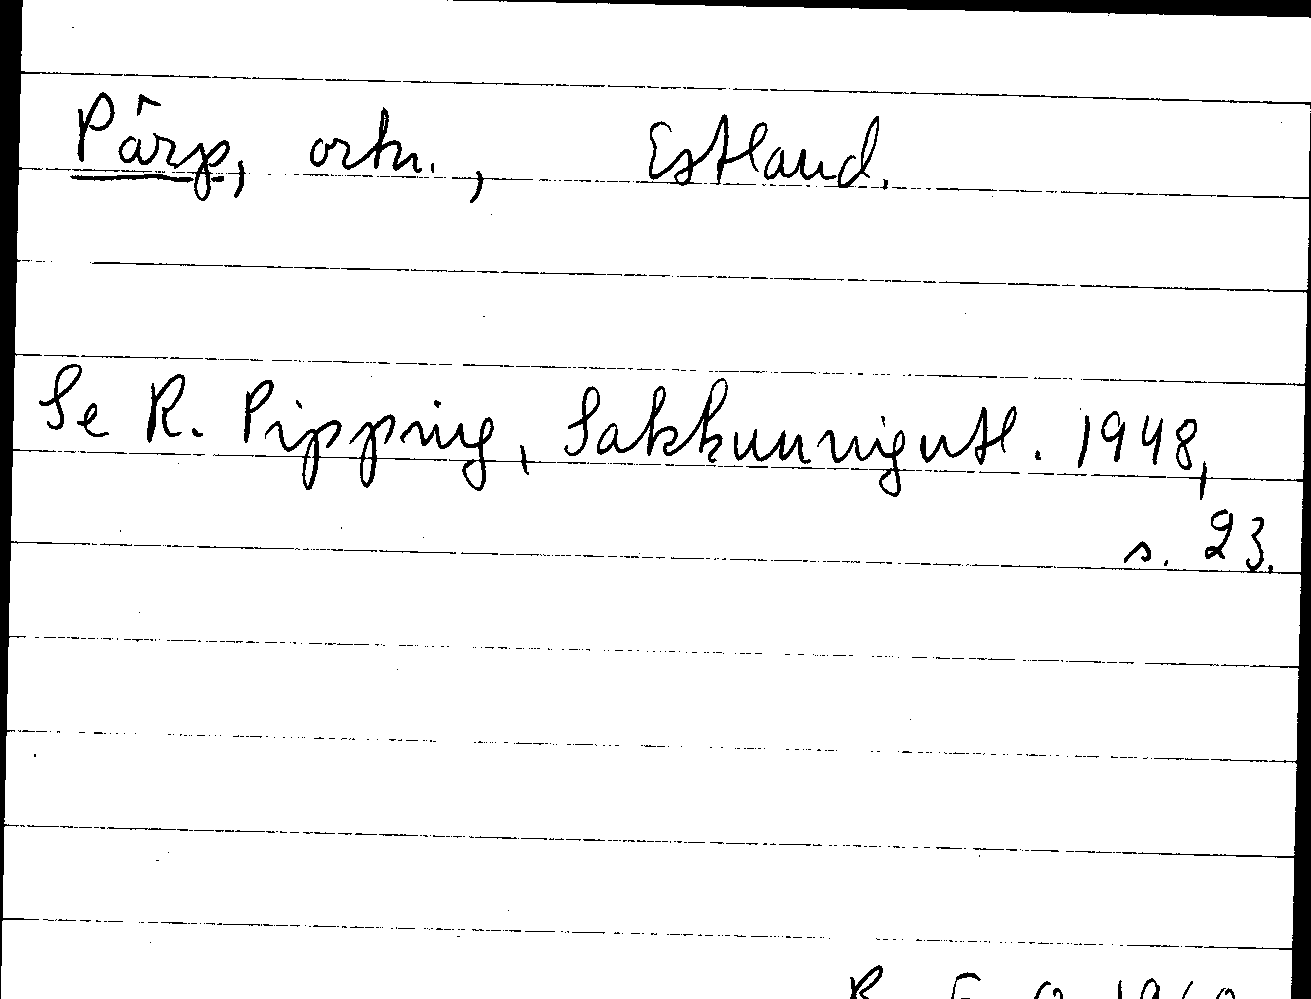 Pârp, ortn., Estland.
Se R. Pipping, Sakkunnigutl. 1948,
s. 23.